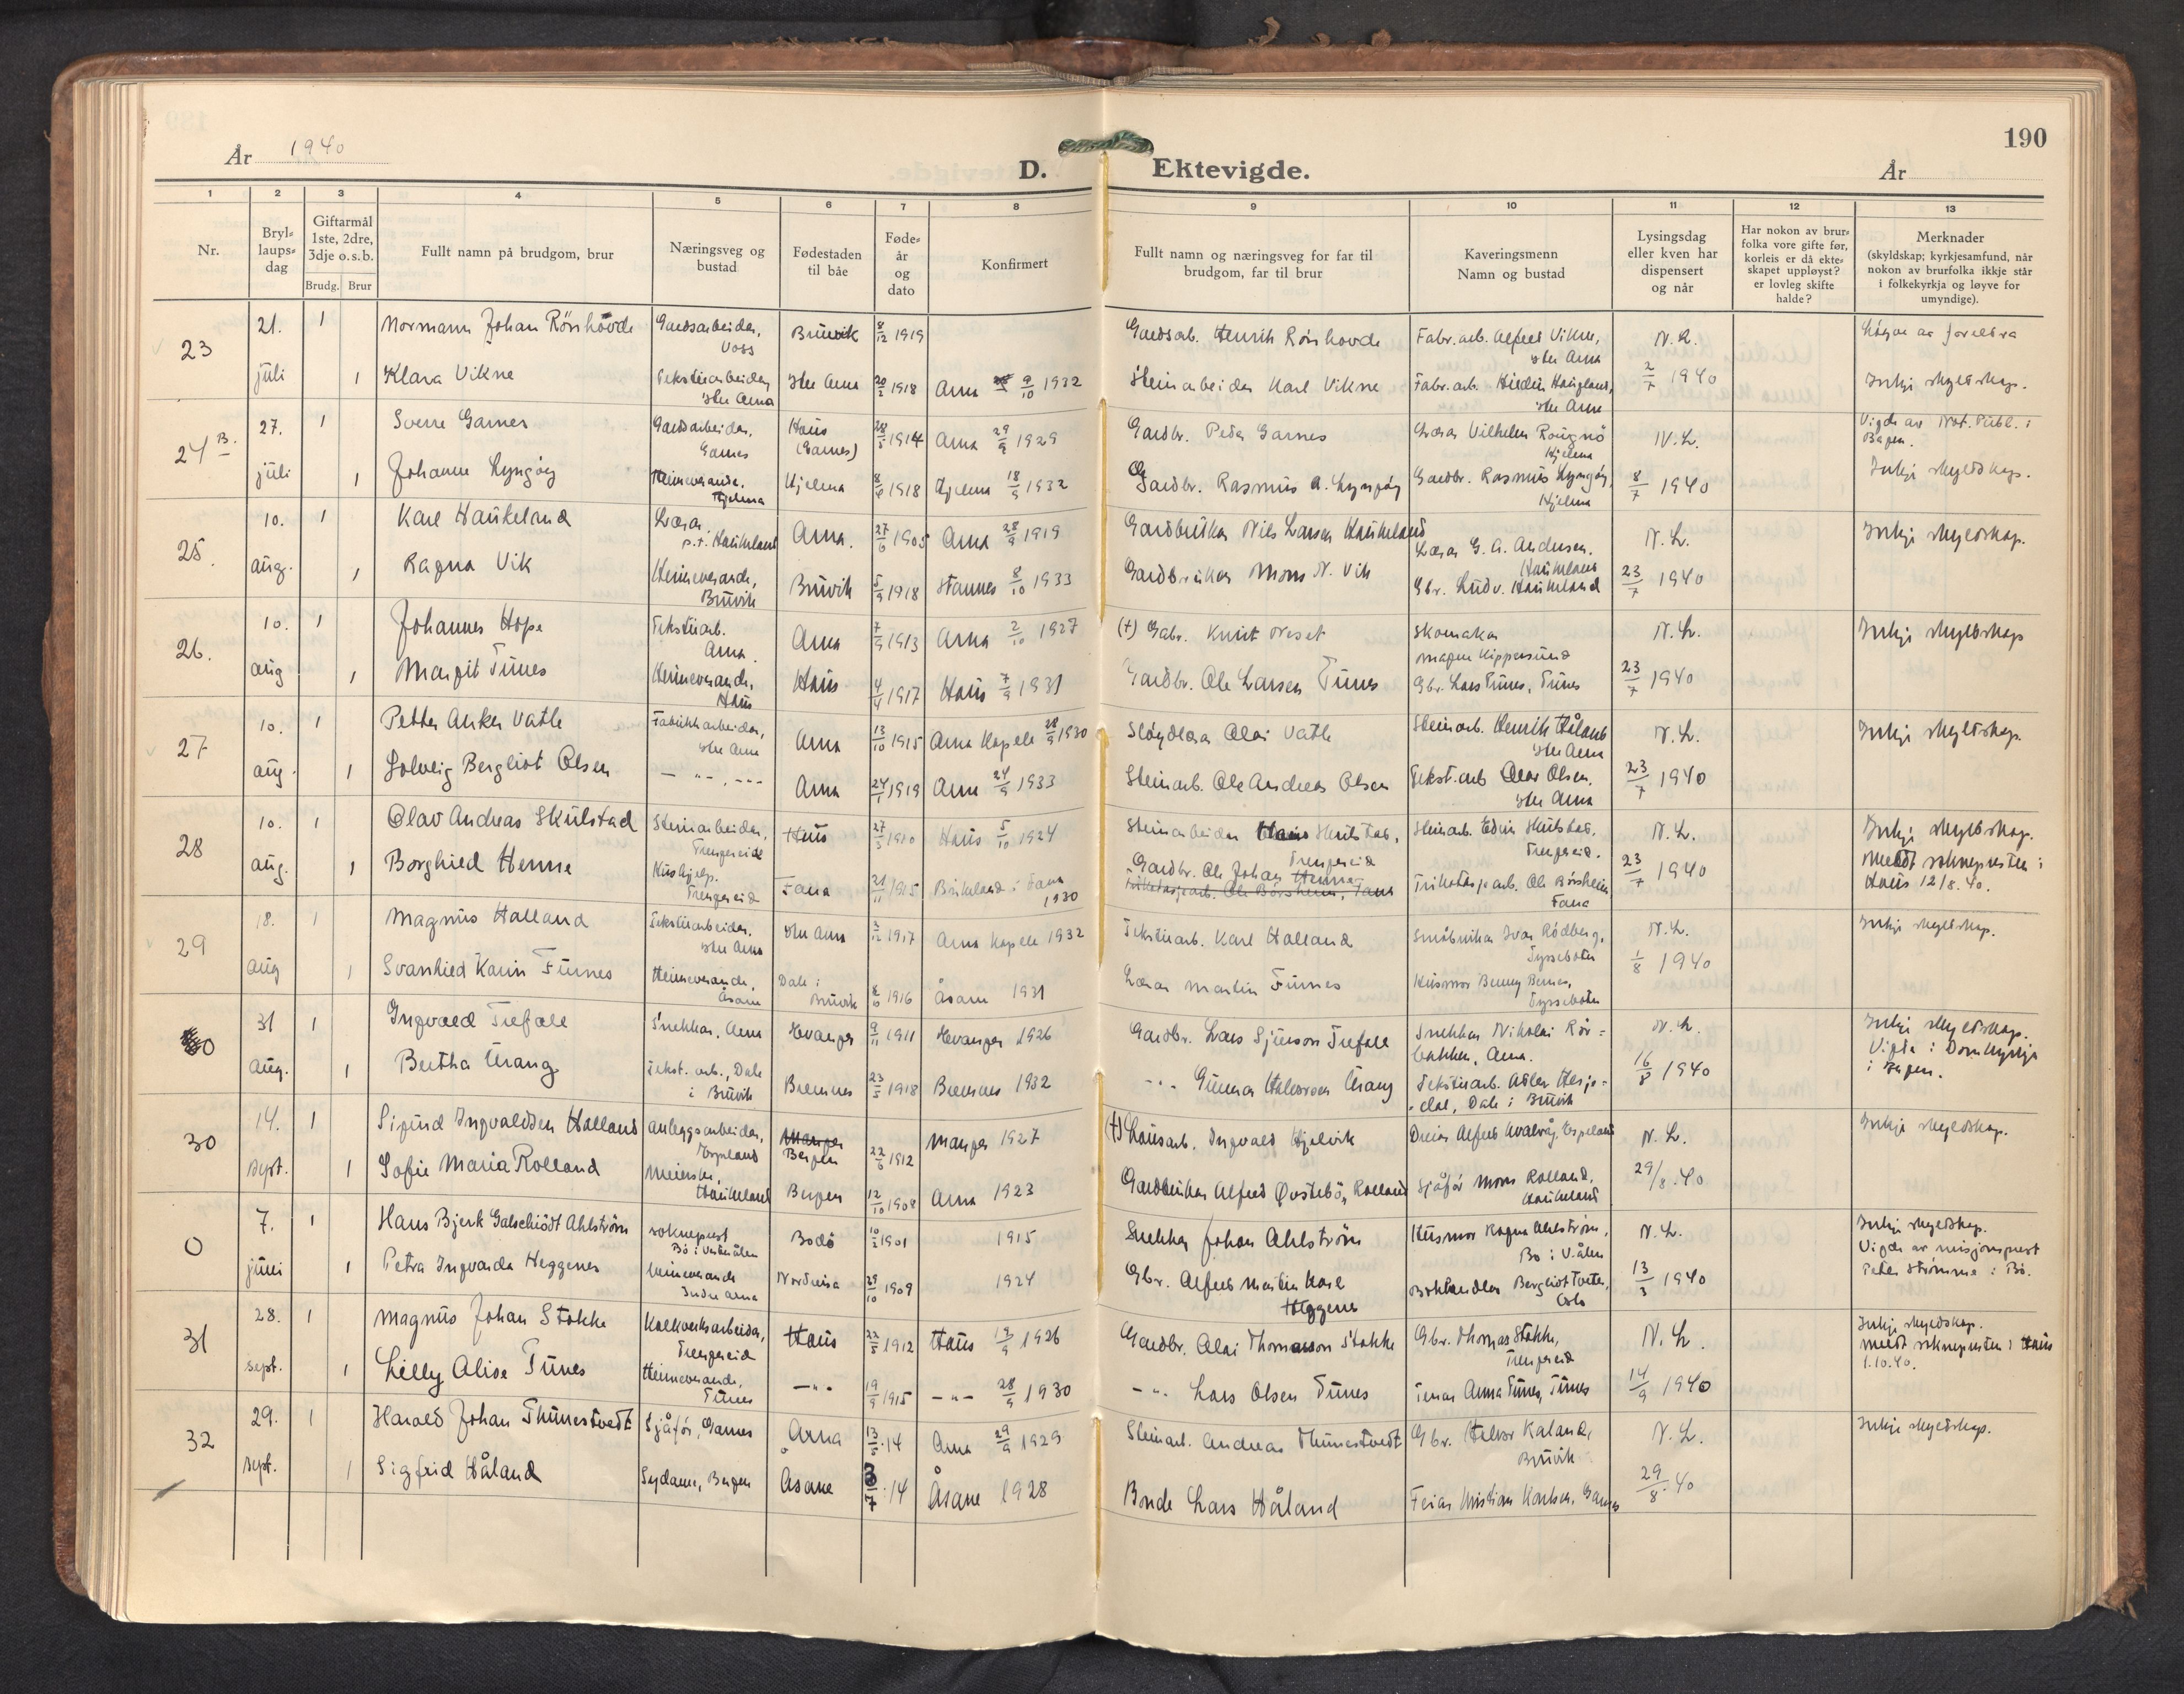 År 1940
D. Ektevigde.
190
År
1 2 3 4 5 6 7 8 9 10 11 12 13
Nr.
Bryl-
laups-
dag
Giftarmål
1ste, 2dre,
3dje o.s.b.
Brudg. Brur
Fullt namn på brudgom, brur
Næringsveg og
bustad
Fødestaden
til båe
Føde-
år
og
dato
Konfirmert
Fullt namn og næringsveg for far til
brudgom, far til brur
Kaveringsmenn
Namn og bustad
Lysingsdag
eller kven har
dispensert
og når
Har nokon av brur-
folka vore gifte før,
korleis er då ekte-
skapet uppløyst?
er lovleg skifte
halde?
Merknader
(skyldskap; kyrkjesamfund, når
nokon av brurfolka ikkje står
i folkekyrkja og løyve for
umyndige).
23
21. 1 Normann Johan Rönhövde Gardsarbeidar, Voss Bruvik 8/12 1919 Gardsarb. Henrik Rönhovde Fabr.arb. Alfred Vikne, Itre Arna N. L. Løyve av foreldra
juli 1 Klara Vikne Tekstilarbeidar, Itre Arna Itre Arna 20/2 1918 Arna 9/10 1932 Steinarbeidar Karl Vikne Fabr.arb. Haugland, Itre Arna 2/7 1940 Inkje skyldskap.
24 B.
27. 1 Sverre Garnes Gardsarbeidar, Garnes Haus (Garnes) 28/5 1914 Arna 29/9 1929 Gardbr. Peder Garnes Lærar Vilhelm Rougnö Hjelma N. L. Vigde av Not. Publ. i Bergen.
juli 1 Johanne Lyngöy Heimeverande, Hjelma Hjelma 8/6 1918 Hjelma 18/9 1932 Gardbr. Rasmus A. Lyngöy Gardbr. Rasmus Lyngöy, Hjelma 8/7 1940 Inkje skyldskap.
25.
10. 1 Karl Haukeland Lærar, p.t. Haukeland Arna. 27/6 1905 Arna 28/9 1919 Gardbrukar Nils Larsen Haukeland Lærar G. A. Andersen, Haukeland N. L. Inkje skyldskap.
aug. 1 Ragna Vik Heimeverande, Bruvik Bruvik 5/9 1918 Stamnes 8/10 1933 Gardbrukar Mons N. Vik Gbr. Ludv. Haukeland 23/7 1940
26.
10. 1 Johannes Hope Tekstilarb. Arna. Arna 7/9 1913 Arna 2/10 1927 (+) Gabr. Knut Neset Skomakar Magne Kippersund N. L. Inkje skyldskap
aug 1 Margit Tunes Heimeverande, Haus Haus 4/4 1917 Haus 7/9 1931 Gardbr. Ole Larsen Tunes Gbr. Lars Tunes, Tunes 23/7 1940
27
10. 1 Petter Anker Vatle Fabrikkarbeidar, Itre Arna Arna 13/10 1915 Arna Kapell 28/9 1930 Slöydlærar Olai Vatle Steinarb. Henrik Håland Itre Arna N. L. Inkje skyldskap.
aug. 1 Solveig Bergliot Olsen — " — , - - - Arna 24/1 1919 Arna 24/9 1933 Steinarb. Ole Andreas Olsen Tekst.arb. Olav Olsen, Itre Arna 23/7 1940
28
10. 1 Olav Andreas Skulstad Steinarbeidar, Trengereid Haus 27/5 1910 Haus 5/10 1924 Steinarbeidar Hans Skulstad, Trengereid Steinarb. Edvin Skulstad, Trengereid. N. L. Inkje skyldskap.
aug. 1 Borghild Henne Hushjelp, Trengereid Fana 21/11 1915 Birkeland i Fana 1930 Gardbr. Ole Johan Henne Trikotasjearb. Ole Börsheim, Fana Trikotasjearb. Ole Börsheim, Fana 23/7 1940 Meldt sokneprsten i Haus 12/8.40.
29
18. 1 Magnus Halland Tekstilarbeidar, Itre Arna Itre Arna 2/12 1917 Arna Kapell 1932 Tekstilarb. Karl Halland Småbrukar Ivar Rödberg, Tyssebotn N. L. Inkje skyldskap.
aug 1 Svanhild Karin Furnes Heimeverande, Åsane Dale i Bruvik 8/10 1916 Åsane 1931 Lærar Martin Furnes Husmor Benny Bernes, Tyssebotn 1/8 1940
0
31 1 Ingvald Trefall Snekkar, Arna Hosanger 9/11 1911 Hosanger 1926 Gardbr. Lars Sjurson Trefall Snekkar Nikolai Rör-bakken, Arna. N. L. Inkje skyldskap.
aug. 1 Bertha Urang Tekst. arb., Dale i Bruvik Bremnes 23/5 1918 Bremnes 1932 - " - Gunnar Halvorsen Urang Tekstilarb. Adler Hesje-dal, Dale i Bruvik 16/8 1940 Vigde i Domkyrkja i Bergen.
30
14. 1 Sigurd Ingvaldsen Halland Anleggsarbeidar, Espeland Manger Bergen 22/6 1912 Manger 1927 (+) Lausarb. Ingvald Hjelvik Dreiar Alfred Kvalvåg, Espeland N. L. Inkje skyldskap.
sept. 1 Sofie Maria Rolland Meierske, Haukeland Bergen 12/10 1908 Arna 1923 Gardbrukar Alfred Qvstebö, Rolland Sjåför Mons Rolland, Haukeland 29/8.40
0
7. 1 Hans Bjerk Galschiödt Ahlström sokneprest Bö i Vesterålen Bodö 10/2 1901 1915 Snekkar Johan Ahlström Husmor Ragna Ahlström, Bö i V.ålen N. L. Inkje skyldskap.
juni 1 Petra Ingvarda Heggenes Heimeverande Indre Arna Nordreisa 29/10 1909 1924 Gbr. Alfred Martin Karl Heggenes Bokhandlar Bergliot Tveter, Oslo 13/3 1940 Vigde av misjonsprest Peder Strömme i Bö.
31
28. 1 Magnus Johan Stokke Kalkverksarbeidar, Trengereid Haus 22/5 1912 Haus 12/9 1926 Gardbr. Olai Thomasson Stokke Gbr. Thomas Stokke, Trengereid N. L. Inkje skyldskap.
sept. 1 Lilly Alise Tunes Heimeverande, Tunes — " — 19/9 1915 — " — 28/9 1930 - " - Lars Olsen Tunes Anna Tunes, Tunes 14/9 1940 meldt sokneprsten i Haus 1.10.40.
32
29. 1 Harald Johan Thunestvedt Sjåför, Garnes Arna 13/5.14 Arna 29/9 1929 Steinarb. Andreas Thunestvedt Gbr. Halvor Kaland, Bruvik N. L. Inkje skyldskap.
sept. 1 Sigfrid Håland Sydame, Bergen Åsane 3/7.14 Åsane 1928 Bonde Lars Håland Feiar Kristian Karlsen, Garnes 29/8.40